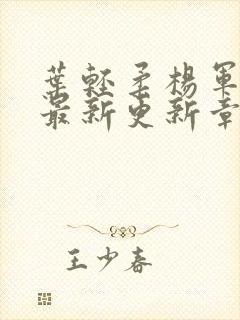 葉輕柔楊軍
最新更新章
王少春